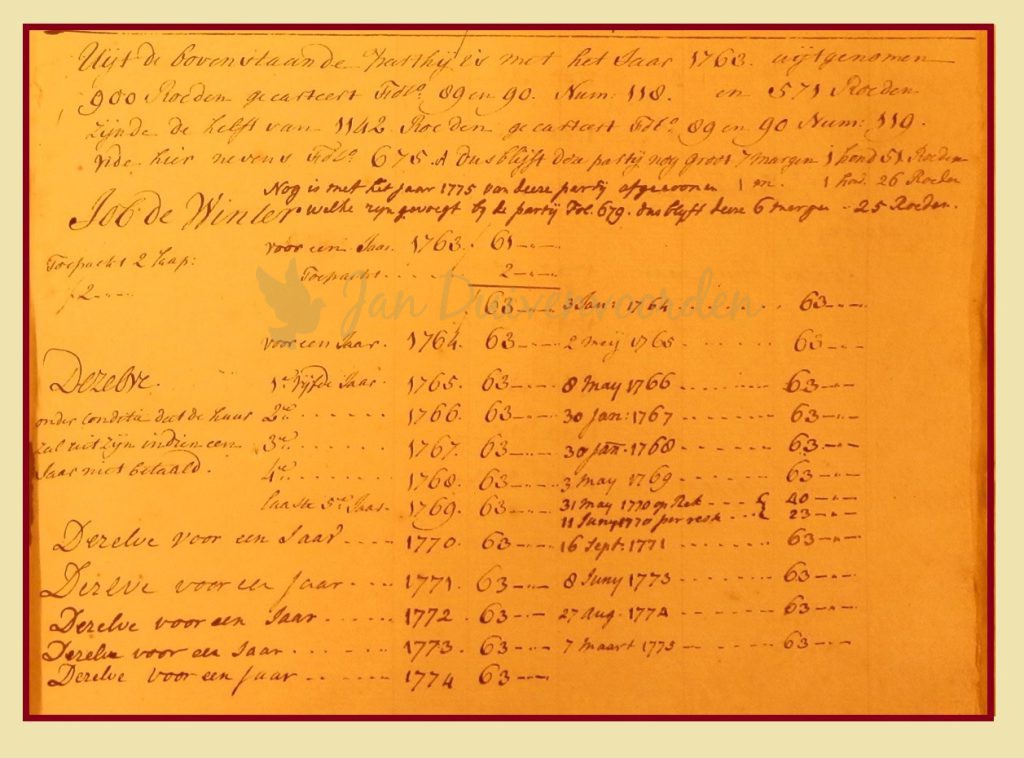 Uijt de bovenstaande Parthij is met het Jaar 1763. uijtgenomen
900 Roeden gecarteert Fol:o 89 en 90. Num: 118. en 571 Roeden
zijnde de helft van 1142 Roeden gecarteert Fol:o 89 en 90 Num: 119.
vide hier nevens Fol:o 675. A dus blijft dea party nog groot 7 margen 1 hond 51 Roeden
Nog is met het jaar 1775 van deeze party afgenoomen 1 m. 1 hon. 26 Roeden
Job de Winter welke zyn gevoegt by de partij Fol. 679. dus blyft deeze 6 margen - 25 Roeden.
voor een Jaar. 1763. f 61 -..-
Toepacht 2 Laap: Toepacht..... 2 -..-
f 2 -..-
f 63 -..- 3 Jan: 1764 .. 63 -..-
Jan Duivenvoorden
voor een Jaar. 1764. 63 -..- 2 meij 1765 ..... 63 -..-
Dezelve. 1e vijfde Jaar. 1765. 63 -..- 8 May 1766 ....... 63 -..-
onder conditie dat de huur 2de....... 1766. 63 -..- 30 Jan: 1767 ....... 63 -..-
zal uit zijn indien een 3de....... 1767. 63 -..- 30 Jan. 1768 ....... 63 -..-
Jaar niet betaald. 4de....... 1768. 63 -..- 3 may 1769 ....... 63 -..-
laaste 5de Jaar. 1769. 63 -..- 31 may 1770 op Rek --- { 40 -..-
11 Juny 1770 per rest ... { 23 -..-
Dezelve voor een Jaar .... 1770. 63 -..- 16 Sept: 1771 ....... 63 -..-
Dezelve voor een Jaar .... 1771. 63 -..- 8 Juny 1773 ....... 63 -..-
Dezelve voor een Jaar ..... 1772 63 -..- 27 Aug. 1774 ....... 63 -..-
Dezelve voor een Jaar ..... 1773. 63 -..- 7 maart 1775 ....... 63 -..-
Dezelve voor een Jaar ..... 1774 63 -..-